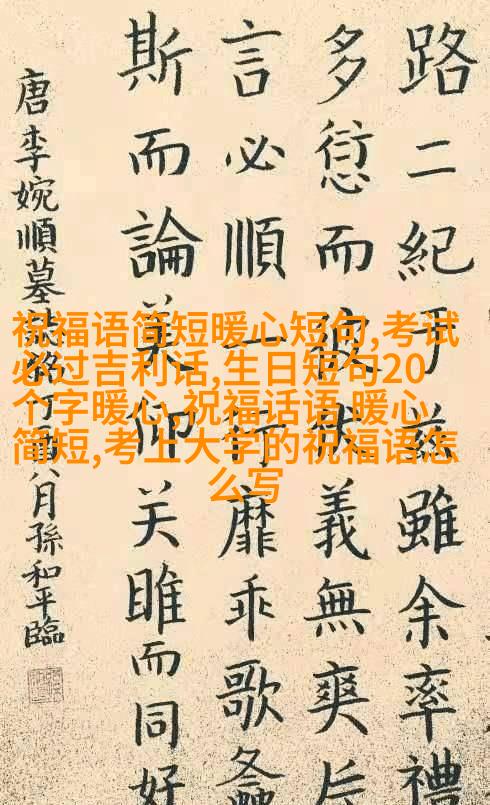 路二紀于茲雖余率禮
多愆而彼義無爽
言必順一行靡乖歌螽
斯而論美仰关雎而同好
唐李婉順墓誌銘丁酉八月孫和平臨
祝福语简短暖心短句,考试
必过吉利话,生日短句20
个字暖心,祝福话语 暖心
简短,考上大学的祝福语怎
么写